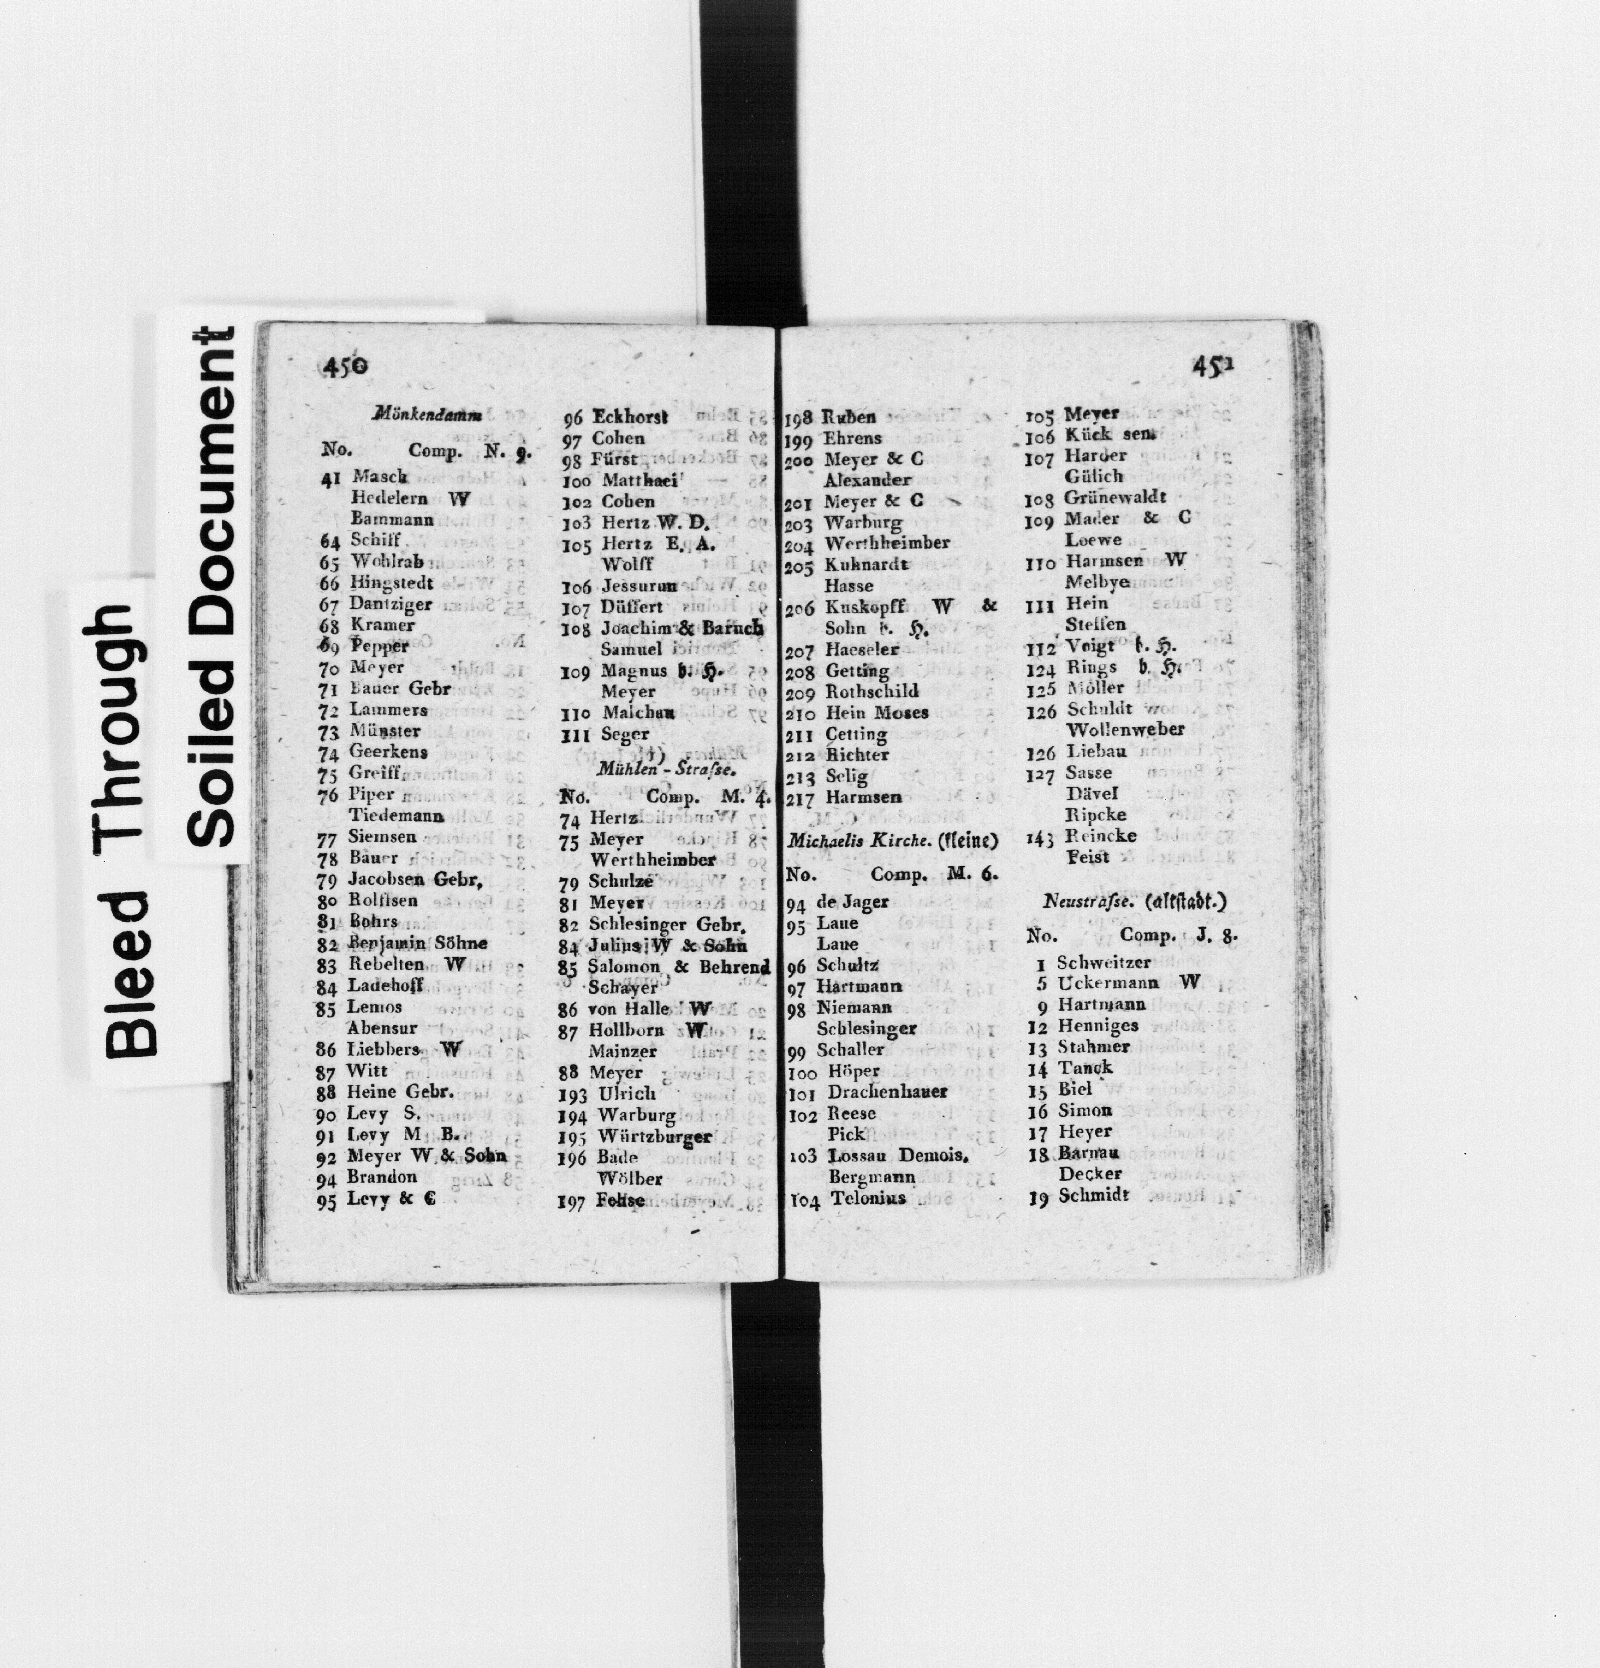 Bleed Through
Soiled Document
450
Mönkendamm
No. Comp. N. 9.
41 Masck
Hedelern W
Bammann
64 Schiff
65 Wohlrab
66 Hingstedt
67 Dantziger
68 Kramer
69 Pepper
70 Meyer
71 Bauer Gebr
72 Lammers
73 Münster
74 Geerkens
75 Greiff
76 Piper
Tiedemann
77 Siemsen
78 Bauer
79 Jacobsen Gebr.
80 Rolffsen
81 Bohrs
82 Benjamin Söhne
83 Rebelten W
84 Ladehoff
85 Lemos
Abensur
86 Liebbers W
87 Witt
88 Heine Gebr.
90 Levy S.
91 Levy M B.
92 Meyer W & Sohn
94 Brandon
95 Levy & C
96 Eckhorst
97 Cohen
98 Fürst
100 Matthaei
102 Cohen
103 Hertz W. D.
105 Hertz E. A.
Wolff
106 Jessurun
107 Düffert
108 Joachim & Baruch
Samuel
109 Magnus b. H.
Meyer
110 Malchau
111 Seger
Mühlen-Strasse.
No. Comp. M. 4.
74 Hertz
75 Meyer
Werthheimber
79 Schulze
81 Meyer
82 Schlesinger Gebr.
84 Julius W & Sohn
85 Salomon & Behrend
Schayer
86 von Halle W
87 Hollborn W
Mainzer
88 Meyer
193 Ulrich
194 Warburg
195 Würtzburger
196 Bade
Wölber
197 Fehse
451
198 Ruben
199 Ehrens
200 Meyer & C
Alexander
201 Meyer & C
203 Warburg
204 Werthheimber
205 Kuhnardt
Hasse
206 Kuskopff W &
Sohn b. H.
207 Haeseler
208 Getting
209 Rothschild
210 Hein Moses
211 Cetting
212 Richter
213 Selig
217 Harmsen
Michaelis Kirche. (kleine)
No. Comp. M. 6.
94 de Jager
95 Laue
Laue
96 Schultz
97 Hartmann
98 Niemann
Schlesinger
99 Schaller
100 Höper
101 Drachenhauer
102 Reese
Pick
103 Lossau Demois.
Bergmann
104 Telonius
105 Meyer
106 Kück sen.
107 Harder
Gülich
108 Grünewaldt
109 Mader & C
Loewe
110 Harmsen W
Melbye
111 Hein
Steffen
112 Voigt b. H.
124 Rings b. H.
125 Möller
126 Schuldt
Wollenweber
126 Liebau
127 Sasse
Dävel
Ripcke
143 Reincke
Feist
Neustraſse. (altstadt.)
No. Comp. J. 8.
1 Schweitzer
5 Uckermann W
9 Hartmann
12 Henniges
13 Stahmer
14 Tanck
15 Biel
16 Simon
17 Heyer
18 Barnau
Decker
19 Schmidt